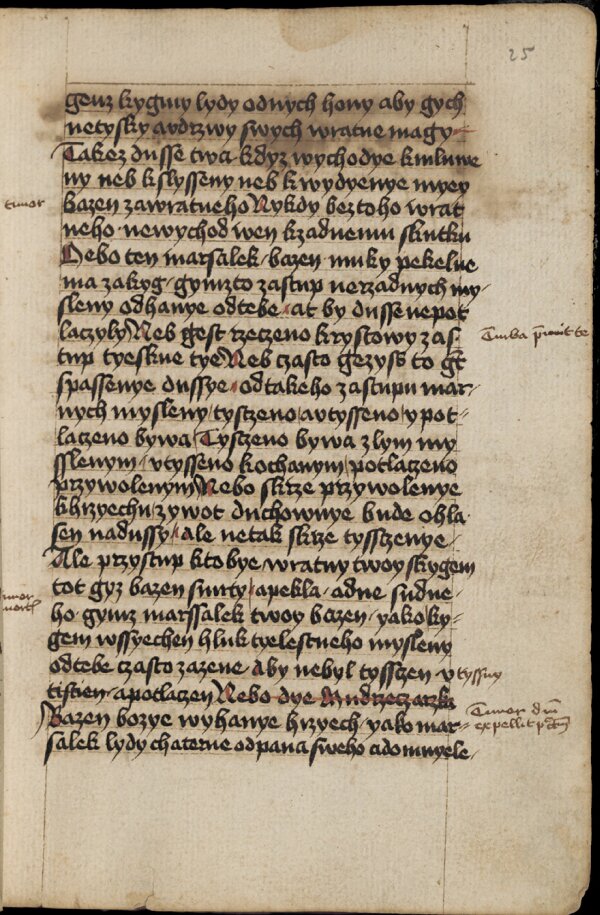 25
genz kygmy lydy odnych hony aby gych
netysky avdrzwy swych wratne magy
Takez dusse twa kdyz wychodye kmluwe
ny neb kslysseny neb kwydyenye myey
timor
bazen zawratneho Nykdy beztoho wrat
neho newychod wen kzadnemu skutku
Nebo ten marsalek bazen muky pekelne
ma zakyg gymzto zastup nerzadnych my
sleny odhanye odtebe at by dussenepot
laczyly Neb gest rzeczeno krystowy zas
Turba premit te
tup tyeskne tye Neb czasto gezyss to gt
spassenye dussye odtakeho zastupu mar
nych mysleny tysczeno avtysseno ypot
laczeno bywa Tysczeno bywa zlym my
sslenym vtysseno kochanym potlaczeno
przywolenym Nebo skrze przywolenye
khrzyechu zywot duchownye bude ohla
sen nadussy ale netak skrze tyssczenye
Ale przystup ktobye wratny twoy skygem
tot gyz bazen smrty apekla adne sudne
ho gymz marssalek twoy bazen yakoky
gem wssyechen hluk tyelestneho mysleny
odtebe czasto zazene Aby nebyl tyssczen v tyssny
tistien apotlaczen Nebo dye Mudrzeczarzku
Bazen bozye wyhanye hrzyech yako mar
Timor dni expellit
salek lydy chaterne odpana sweho adomnyele